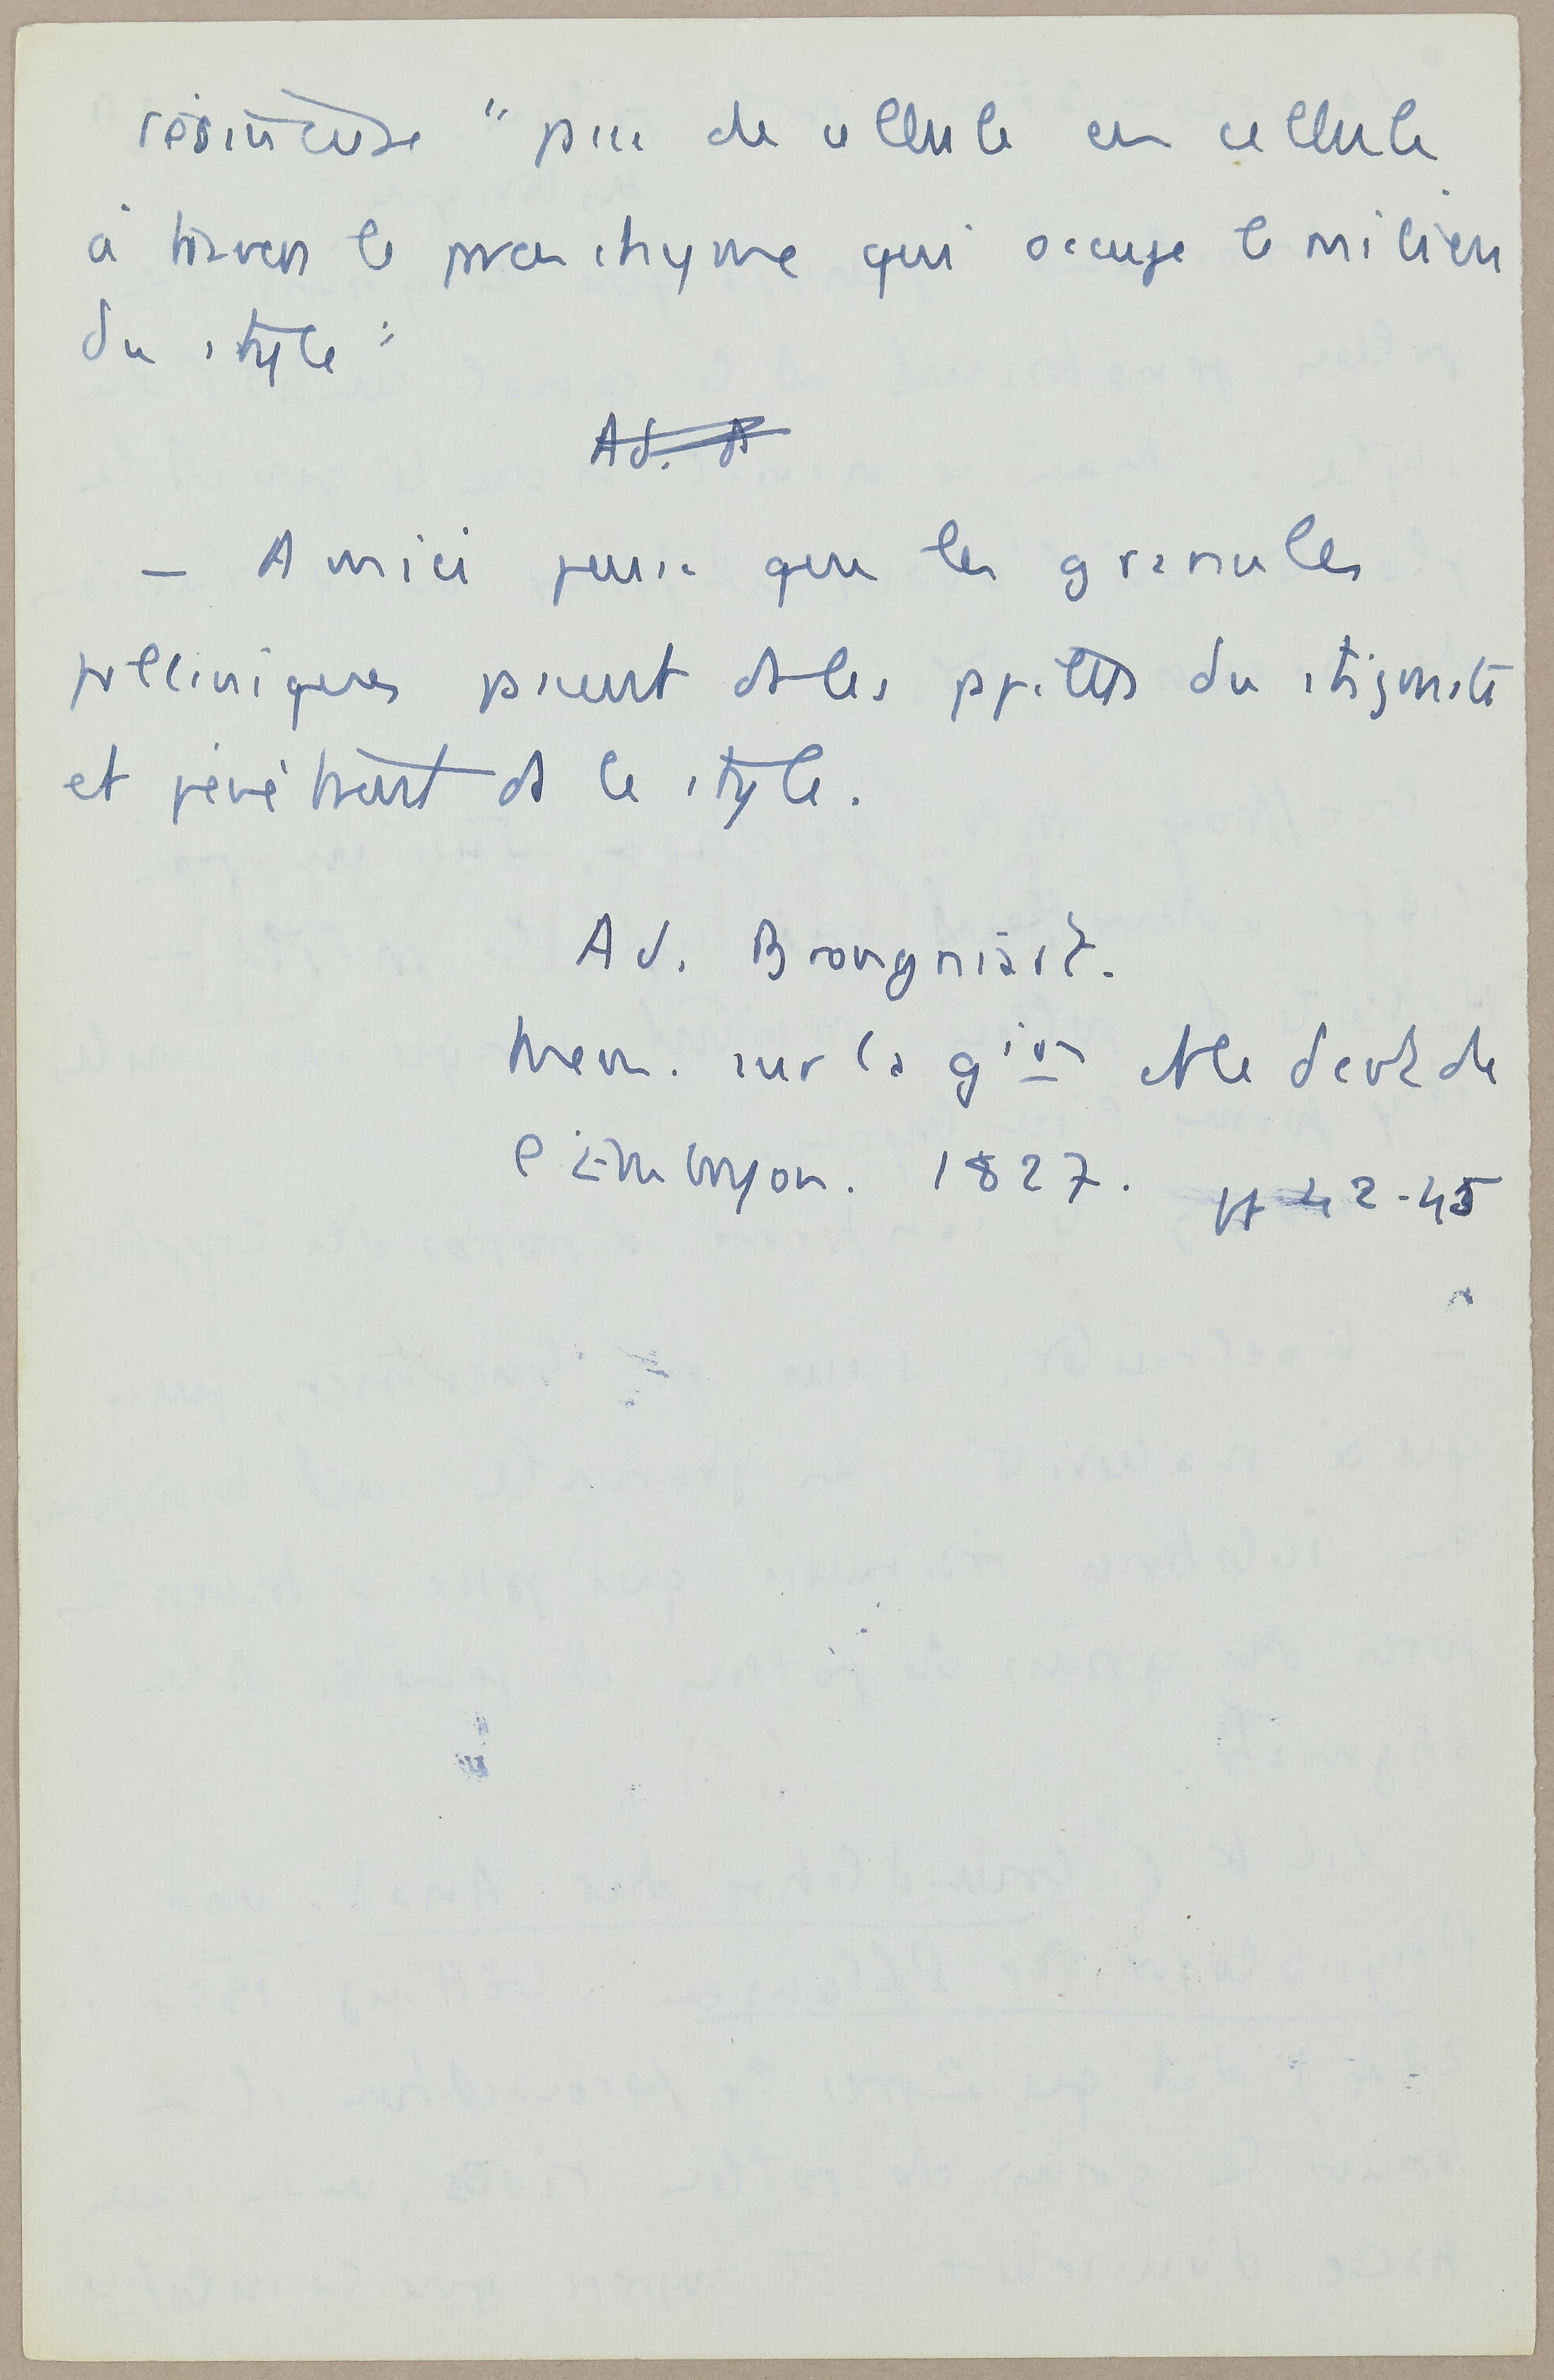 résineuse " passe de cellule en cellule
à travers le parenchyme qui occupe le milieu
du style "
Ad.
– Amici pense que les granules
polliniques passent ds les papilles du stigmate
et pénètrent ds le style.
Ad. Brongniart.
Mem. sur la gion et le devt de
l'Embryon. 1827. 42-45